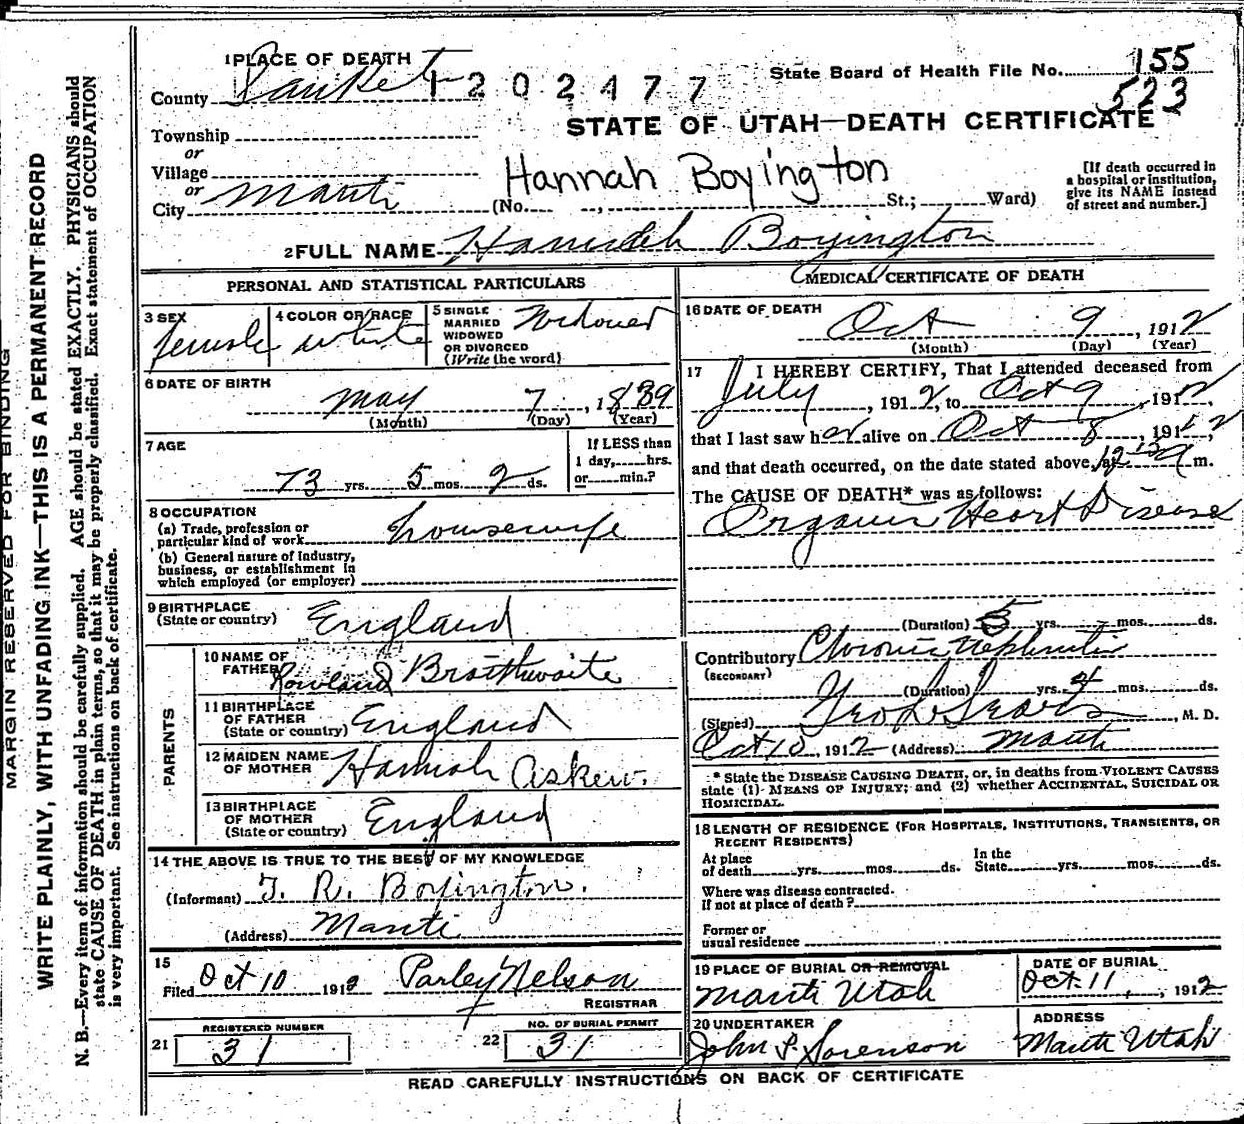 1 PLACE OF DEATH
County Sanpete
1202477
State Board of Health File No. 155
523
STATE OF UTAH—DEATH CERTIFICATE
Township
or
Village
or
City Manti
Hannah Boyington
(No. , St.; Ward)
[If death occurred in a hospital or institution, give its NAME instead of street and number.]
2 FULL NAME Hannah Boyington
PERSONAL AND STATISTICAL PARTICULARS
3 SEX female
4 COLOR OR RACE white
5 SINGLE MARRIED WIDOWED OR DIVORCED (Write the word) Widowed
6 DATE OF BIRTH
May 7, 1839
(Month) (Day) (Year)
7 AGE
73 yrs. 5 mos. 2 ds.
If LESS than 1 day, hrs. or min.?
8 OCCUPATION
(a) Trade, profession or particular kind of work housewife
(b) General nature of industry, business, or establishment in which employed (or employer)
9 BIRTHPLACE (State or country) England
PARENTS
10 NAME OF FATHER Rowland Braithwaite
11 BIRTHPLACE OF FATHER (State or country) England
12 MAIDEN NAME OF MOTHER Hannah Askew.
13 BIRTHPLACE OF MOTHER (State or country) England
14 THE ABOVE IS TRUE TO THE BEST OF MY KNOWLEDGE
(Informant) T. R. Boyington.
(Address) Manti
15
Filed Oct 10 1912 Parley Nelson
REGISTRAR
21 REGISTERED NUMBER 31
22 NO. OF BURIAL PERMIT 31
MEDICAL CERTIFICATE OF DEATH
16 DATE OF DEATH
Oct 9, 1912
(Month) (Day) (Year)
17 I HEREBY CERTIFY, That I attended deceased from
July, 1912, to Oct 9, 1912,
that I last saw her alive on Oct 8, 1912,
and that death occurred, on the date stated above, at m.
The CAUSE OF DEATH* was as follows:
Organic Heart Disease
(Duration) 5 yrs. mos. ds.
Contributory (SECONDARY) Chronic Nephritis
(Duration) yrs. 4 mos. ds.
(Signed) Geo L Sears, M. D.
Oct 10, 1912 (Address) Manti
* State the DISEASE CAUSING DEATH, or, in deaths from VIOLENT CAUSES
state (1) MEANS OF INJURY; and (2) whether ACCIDENTAL, SUICIDAL OR
HOMICIDAL.
18 LENGTH OF RESIDENCE (FOR HOSPITALS, INSTITUTIONS, TRANSIENTS, OR
RECENT RESIDENTS)
At place of death yrs. mos. ds. In the State yrs. mos. ds.
Where was disease contracted.
If not at place of death?
Former or
usual residence
19 PLACE OF BURIAL OR REMOVAL
Manti Utah
DATE OF BURIAL
Oct. 11, 1912
20 UNDERTAKER
John P. Sorenson
ADDRESS
Manti Utah
READ CAREFULLY INSTRUCTIONS ON BACK OF CERTIFICATE
MARGIN RESERVED FOR BINDING
WRITE PLAINLY, WITH UNFADING INK—THIS IS A PERMANENT RECORD
N. B.—Every item of information should be carefully supplied. AGE should be stated EXACTLY. PHYSICIANS should
state CAUSE OF DEATH in plain terms, so that it may be properly classified. Exact statement of OCCUPATION
is very important. See instructions on back of certificate.